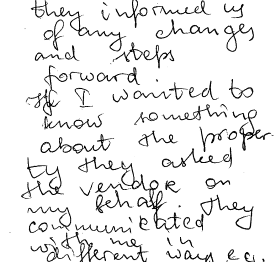 they informed us
of any changes
and steps
forward.
If I wanted to
know something
about the proper-
ty they asked
the vendor on
my behalf. They
communicated
with me in
different ways e.g.